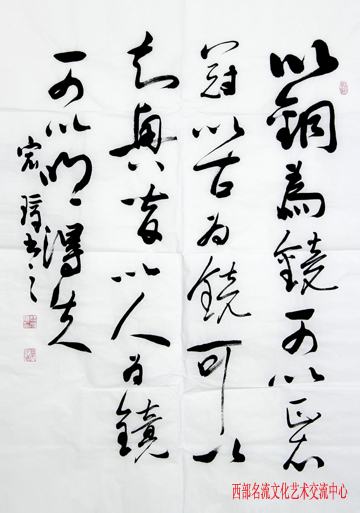 以銅為鏡可以正衣
冠以古为鏡可以
知興替以人为鏡
可以明得失
书之
西部名流文化艺术交流中心